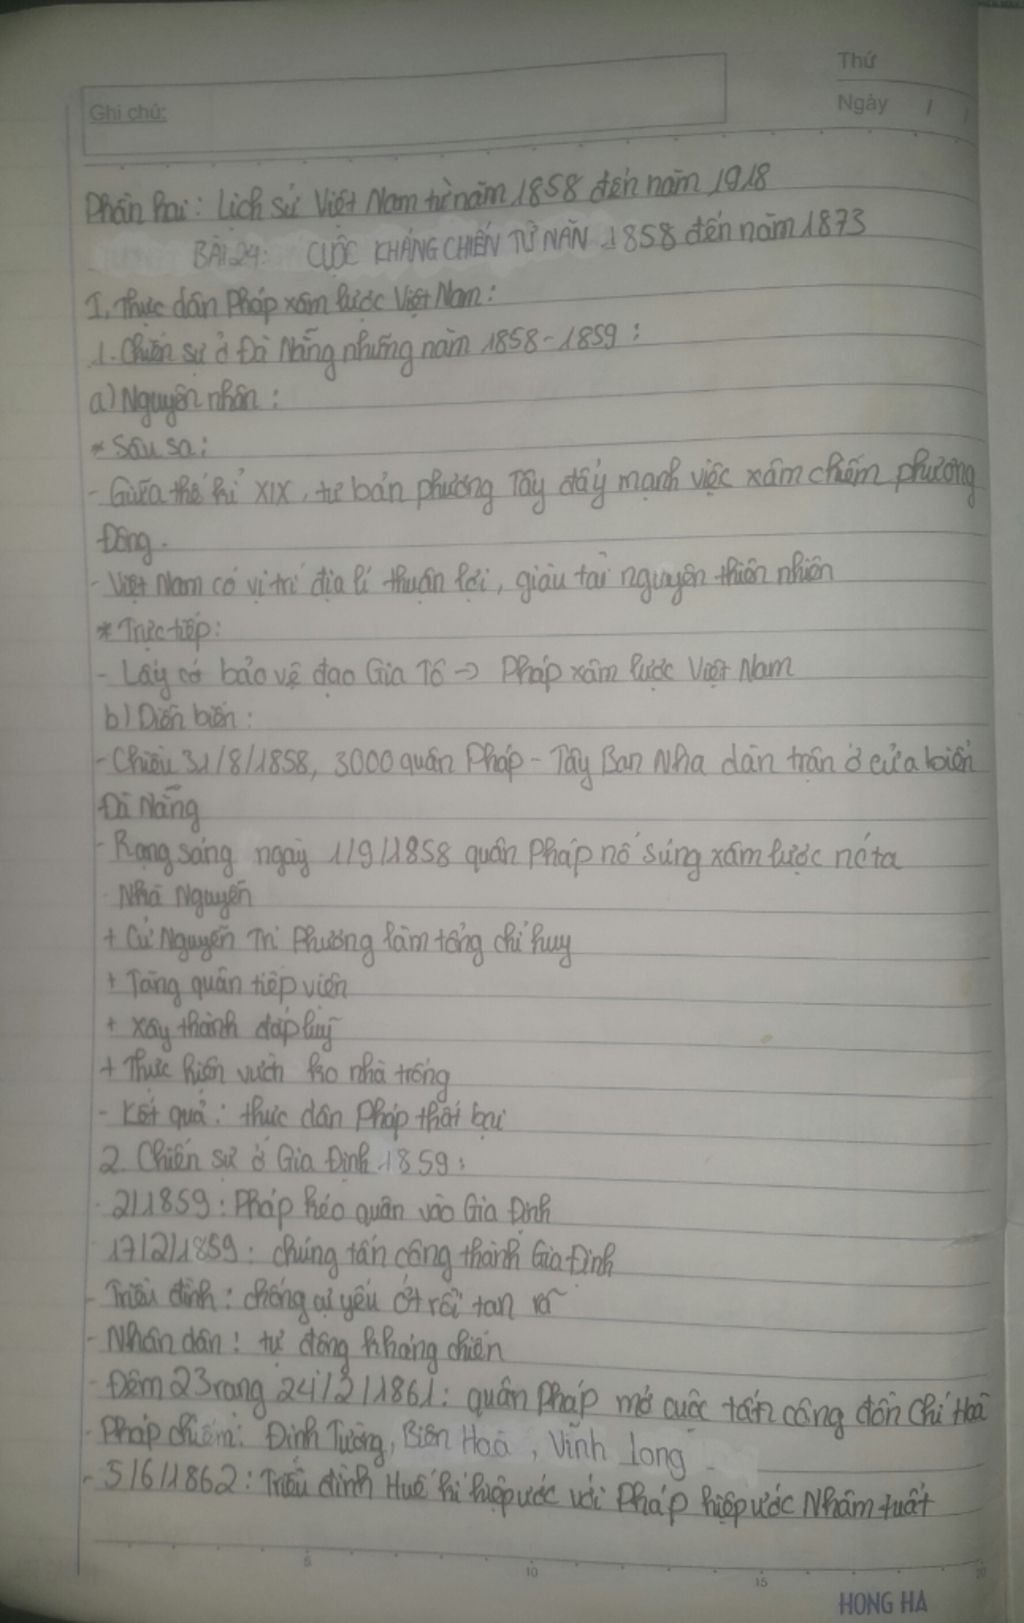 Thứ
Ghi chú:
Ngày / /
Phần hai: Lịch sử Việt Nam từ năm 1858 đến năm 1918
BÀI 24: CUỘC KHÁNG CHIẾN TỪ NĂN 1858 đến năm 1873
I. Thực dân Pháp xâm lược Việt Nam:
1. Chiến sự ở Đà Nẵng những năm 1858-1859:
a) Nguyên nhân:
* Sâu sa:
- Giữa thế kỉ XIX, tư bản phương Tây đẩy mạnh việc xâm chiếm phương
Đông.
- Việt Nam có vị trí địa lí thuận lợi, giàu tài nguyên thiên nhiên
* Trực tiếp:
- Lấy cớ bảo vệ đạo Gia Tô -> Pháp xâm lược Việt Nam
b) Diễn biến:
- Chiều 31/8/1858, 3000 quân Pháp - Tây Ban Nha dàn trận ở cửa biển
Đà Nẵng
- Rạng sáng ngày 1/9/1858 quân Pháp nổ súng xâm lược nc ta
- Nhà Nguyễn
+ Cử Nguyễn Tri Phương làm tổng chỉ huy
+ Tăng quân tiếp viện
+ Xây thành đắp luỹ
+ Thực hiện vườn ko nhà trống
- Kết quả: thực dân Pháp thất bại
2. Chiến sự ở Gia Định 1859:
- 2/1859: Pháp kéo quân vào Gia Định
17/2/1859: chúng tấn công thành Gia Định
- Triều đình: chống cự yếu ớt rồi tan rã
- Nhân dân: tự động kháng chiến
- Đêm 23 rạng 24/2/1861: quân Pháp mở cuộc tấn công đồn Chí Hoà
- Pháp chiếm: Định Tường, Biên Hoà, Vĩnh Long
- 5/6/1862: Triều đình Huế kí hiệp ước với Pháp hiệp ước Nhâm tuất
5 10 15 20
HONG HA